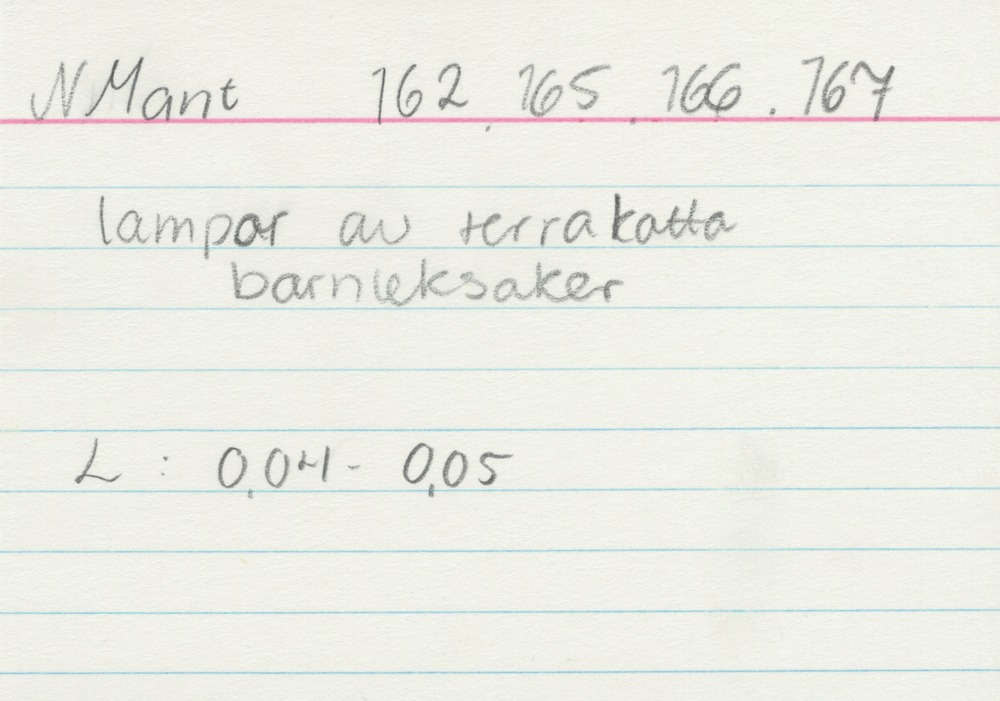 NMant 162, 165, 166, 167
lampor av terrakotta
barnleksaker
L: 0,04 - 0,05